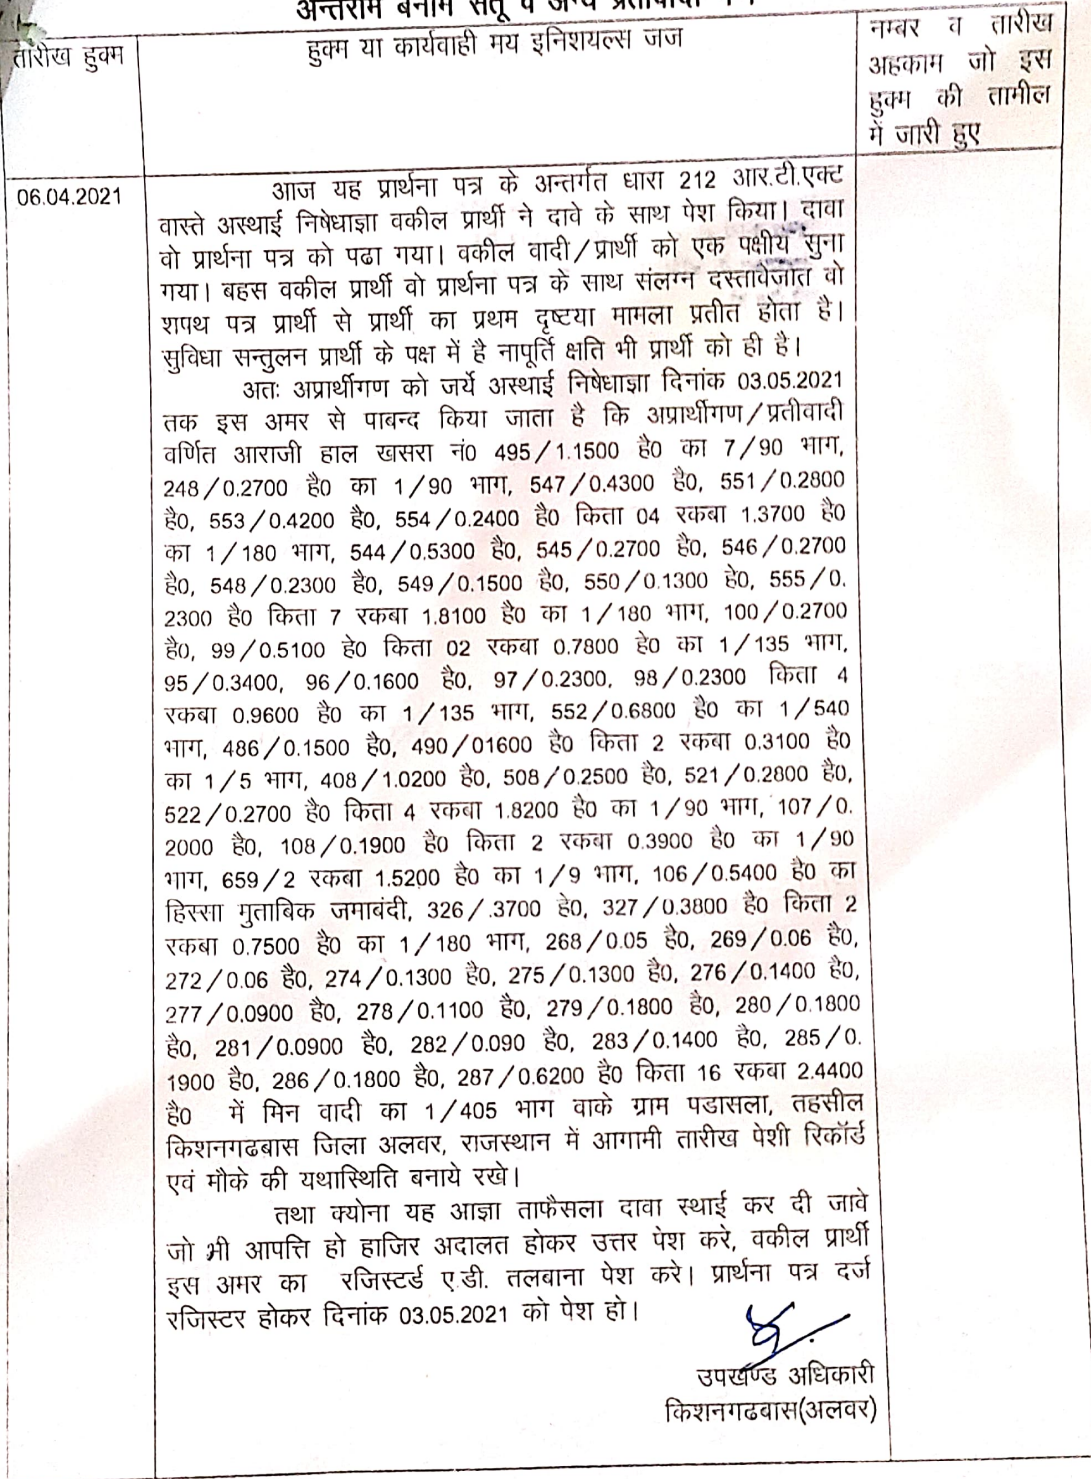 अन्तराम बनाम सतू व अन्य प्रतीवादी
तारीख हुक्म
हुक्म या कार्यवाही मय इनिशयल्स जज
नम्बर व तारीख
अहकाम जो इस
हुक्म की तामील
में जारी हुए
06.04.2021
आज यह प्रार्थना पत्र के अन्तर्गत धारा 212 आर.टी.एक्ट
वास्ते अस्थाई निषेधाज्ञा वकील प्रार्थी ने दावे के साथ पेश किया। दावा
वो प्रार्थना पत्र को पढा गया। वकील वादी/प्रार्थी को एक पक्षीय सुना
गया। बहस वकील प्रार्थी वो प्रार्थना पत्र के साथ संलग्न दस्तावेजात वो
शपथ पत्र प्रार्थी से प्रार्थी का प्रथम दृष्टया मामला प्रतीत होता है।
सुविधा सन्तुलन प्रार्थी के पक्ष में है नापूर्ति क्षति भी प्रार्थी को ही है।
अतः अप्रार्थीगण को जर्ये अस्थाई निषेधाज्ञा दिनांक 03.05.2021
तक इस अमर से पाबन्द किया जाता है कि अप्रार्थीगण/प्रतीवादी
वर्णित आराजी हाल खसरा नं0 495/1.1500 है0 का 7/90 भाग,
248/0.2700 है0 का 1/90 भाग, 547/0.4300 है0, 551/0.2800
है0, 553/0.4200 है0, 554/0.2400 है0 किता 04 रकबा 1.3700 है0
का 1/180 भाग, 544/0.5300 है0, 545/0.2700 है0, 546/0.2700
है0, 548/0.2300 है0, 549/0.1500 है0, 550/0.1300 हे0, 555/0.
2300 है0 किता 7 रकबा 1.8100 है0 का 1/180 भाग, 100/0.2700
है0, 99/0.5100 हे0 किता 02 रकबा 0.7800 हे0 का 1/135 भाग,
95/0.3400, 96/0.1600 है0, 97/0.2300, 98/0.2300 किता 4
रकबा 0.9600 है0 का 1/135 भाग, 552/0.6800 है0 का 1/540
भाग, 486/0.1500 है0, 490/01600 है0 किता 2 रकबा 0.3100 है0
का 1/5 भाग, 408/1.0200 है0, 508/0.2500 है0, 521/0.2800 है0,
522/0.2700 है0 किता 4 रकबा 1.8200 है0 का 1/90 भाग, 107/0.
2000 है0, 108/0.1900 है0 किता 2 रकबा 0.3900 है0 का 1/90
भाग, 659/2 रकबा 1.5200 है0 का 1/9 भाग, 106/0.5400 है0 का
हिस्सा मुताबिक जमाबंदी, 326/.3700 हे0, 327/0.3800 है0 किता 2
रकबा 0.7500 है0 का 1/180 भाग, 268/0.05 है0, 269/0.06 है0,
272/0.06 है0, 274/0.1300 है0, 275/0.1300 है0, 276/0.1400 है0,
277/0.0900 है0, 278/0.1100 है0, 279/0.1800 है0, 280/0.1800
है0, 281/0.0900 है0, 282/0.090 है0, 283/0.1400 है0, 285/0.
1900 है0, 286/0.1800 है0, 287/0.6200 है0 किता 16 रकबा 2.4400
है0 में मिन वादी का 1/405 भाग वाके ग्राम पडासला, तहसील
किशनगढबास जिला अलवर, राजस्थान में आगामी तारीख पेशी रिकॉर्ड
एवं मौके की यथास्थिति बनाये रखे।
तथा क्योना यह आज्ञा ताफैसला दावा स्थाई कर दी जावे
जो भी आपत्ति हो हाजिर अदालत होकर उत्तर पेश करे, वकील प्रार्थी
इस अमर का रजिस्टर्ड ए.डी. तलबाना पेश करे। प्रार्थना पत्र दर्ज
रजिस्टर होकर दिनांक 03.05.2021 को पेश हो।
उपखण्ड अधिकारी
किशनगढबास(अलवर)